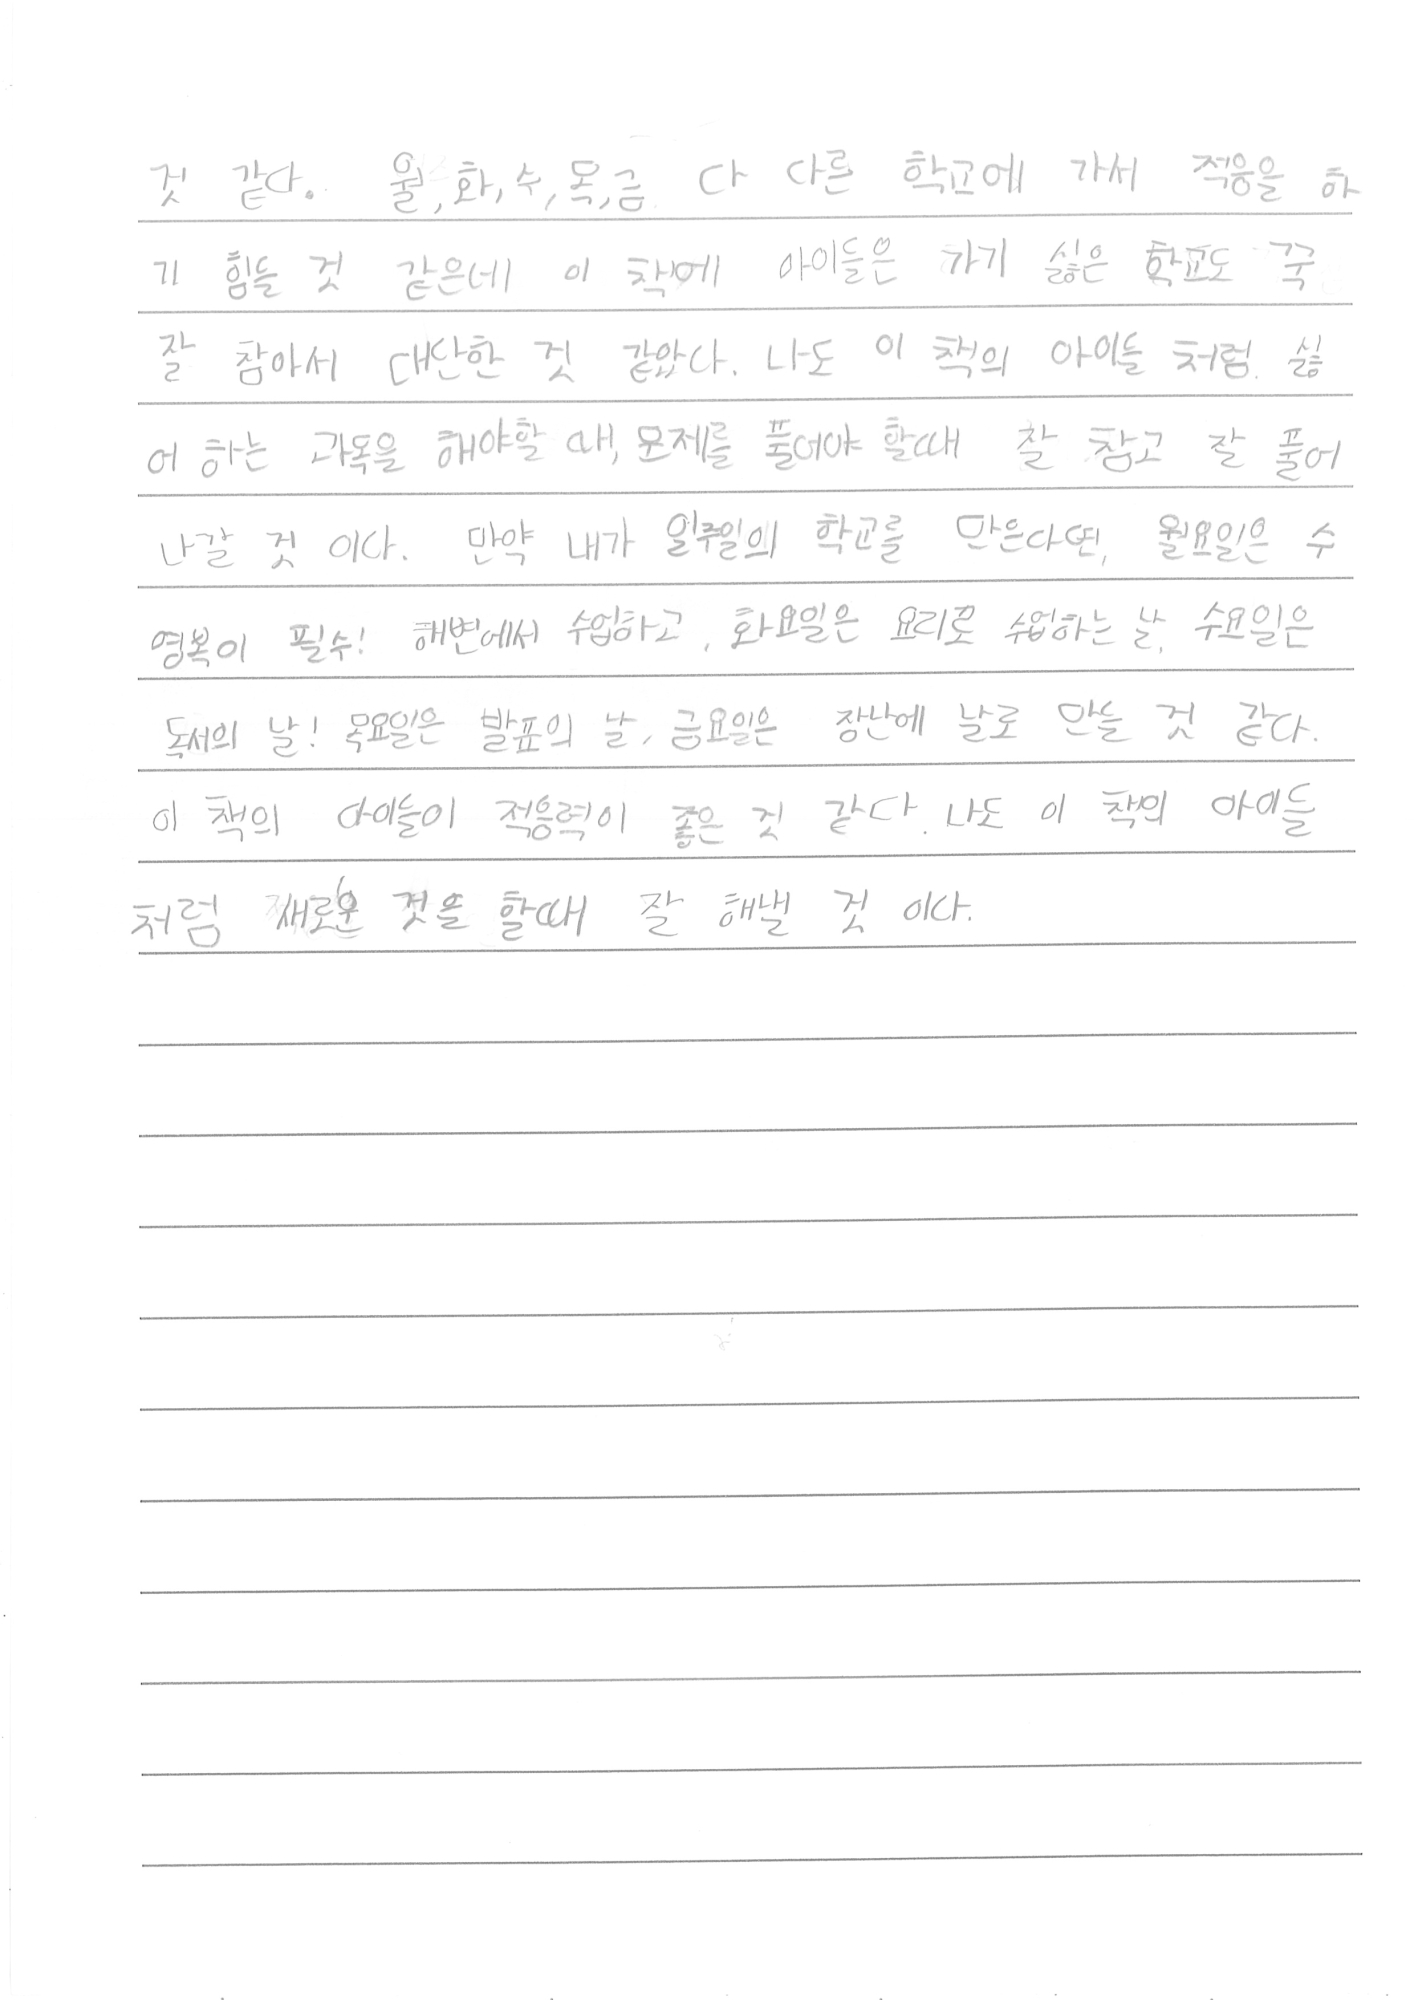 것 같다. 월,화,수,목,금 다 다른 학교에 가서 적응을 하
기 힘들 것 같은데 이 책에 아이들은 가기 싫은 학교도 꾹
잘 참아서 대단한 것 같았다. 나도 이 책의 아이들 처럼 싫
어 하는 과목을 해야할 때, 문제를 풀어야 할때 잘 참고 잘 풀어
나갈 것 이다. 만약 내가 일주일의 학교를 만든다면, 월요일은 수
영복이 필수! 해변에서 수업하고, 화요일은 요리로 수업하는 날, 수요일은
독서의 날! 목요일은 발표의 날, 금요일은 장난에 날로 만들 것 같다.
이 책의 아이들이 적응력이 좋은 것 같다. 나도 이 책의 아이들
처럼 새로운 것을 할때 잘 해낼 것 이다.